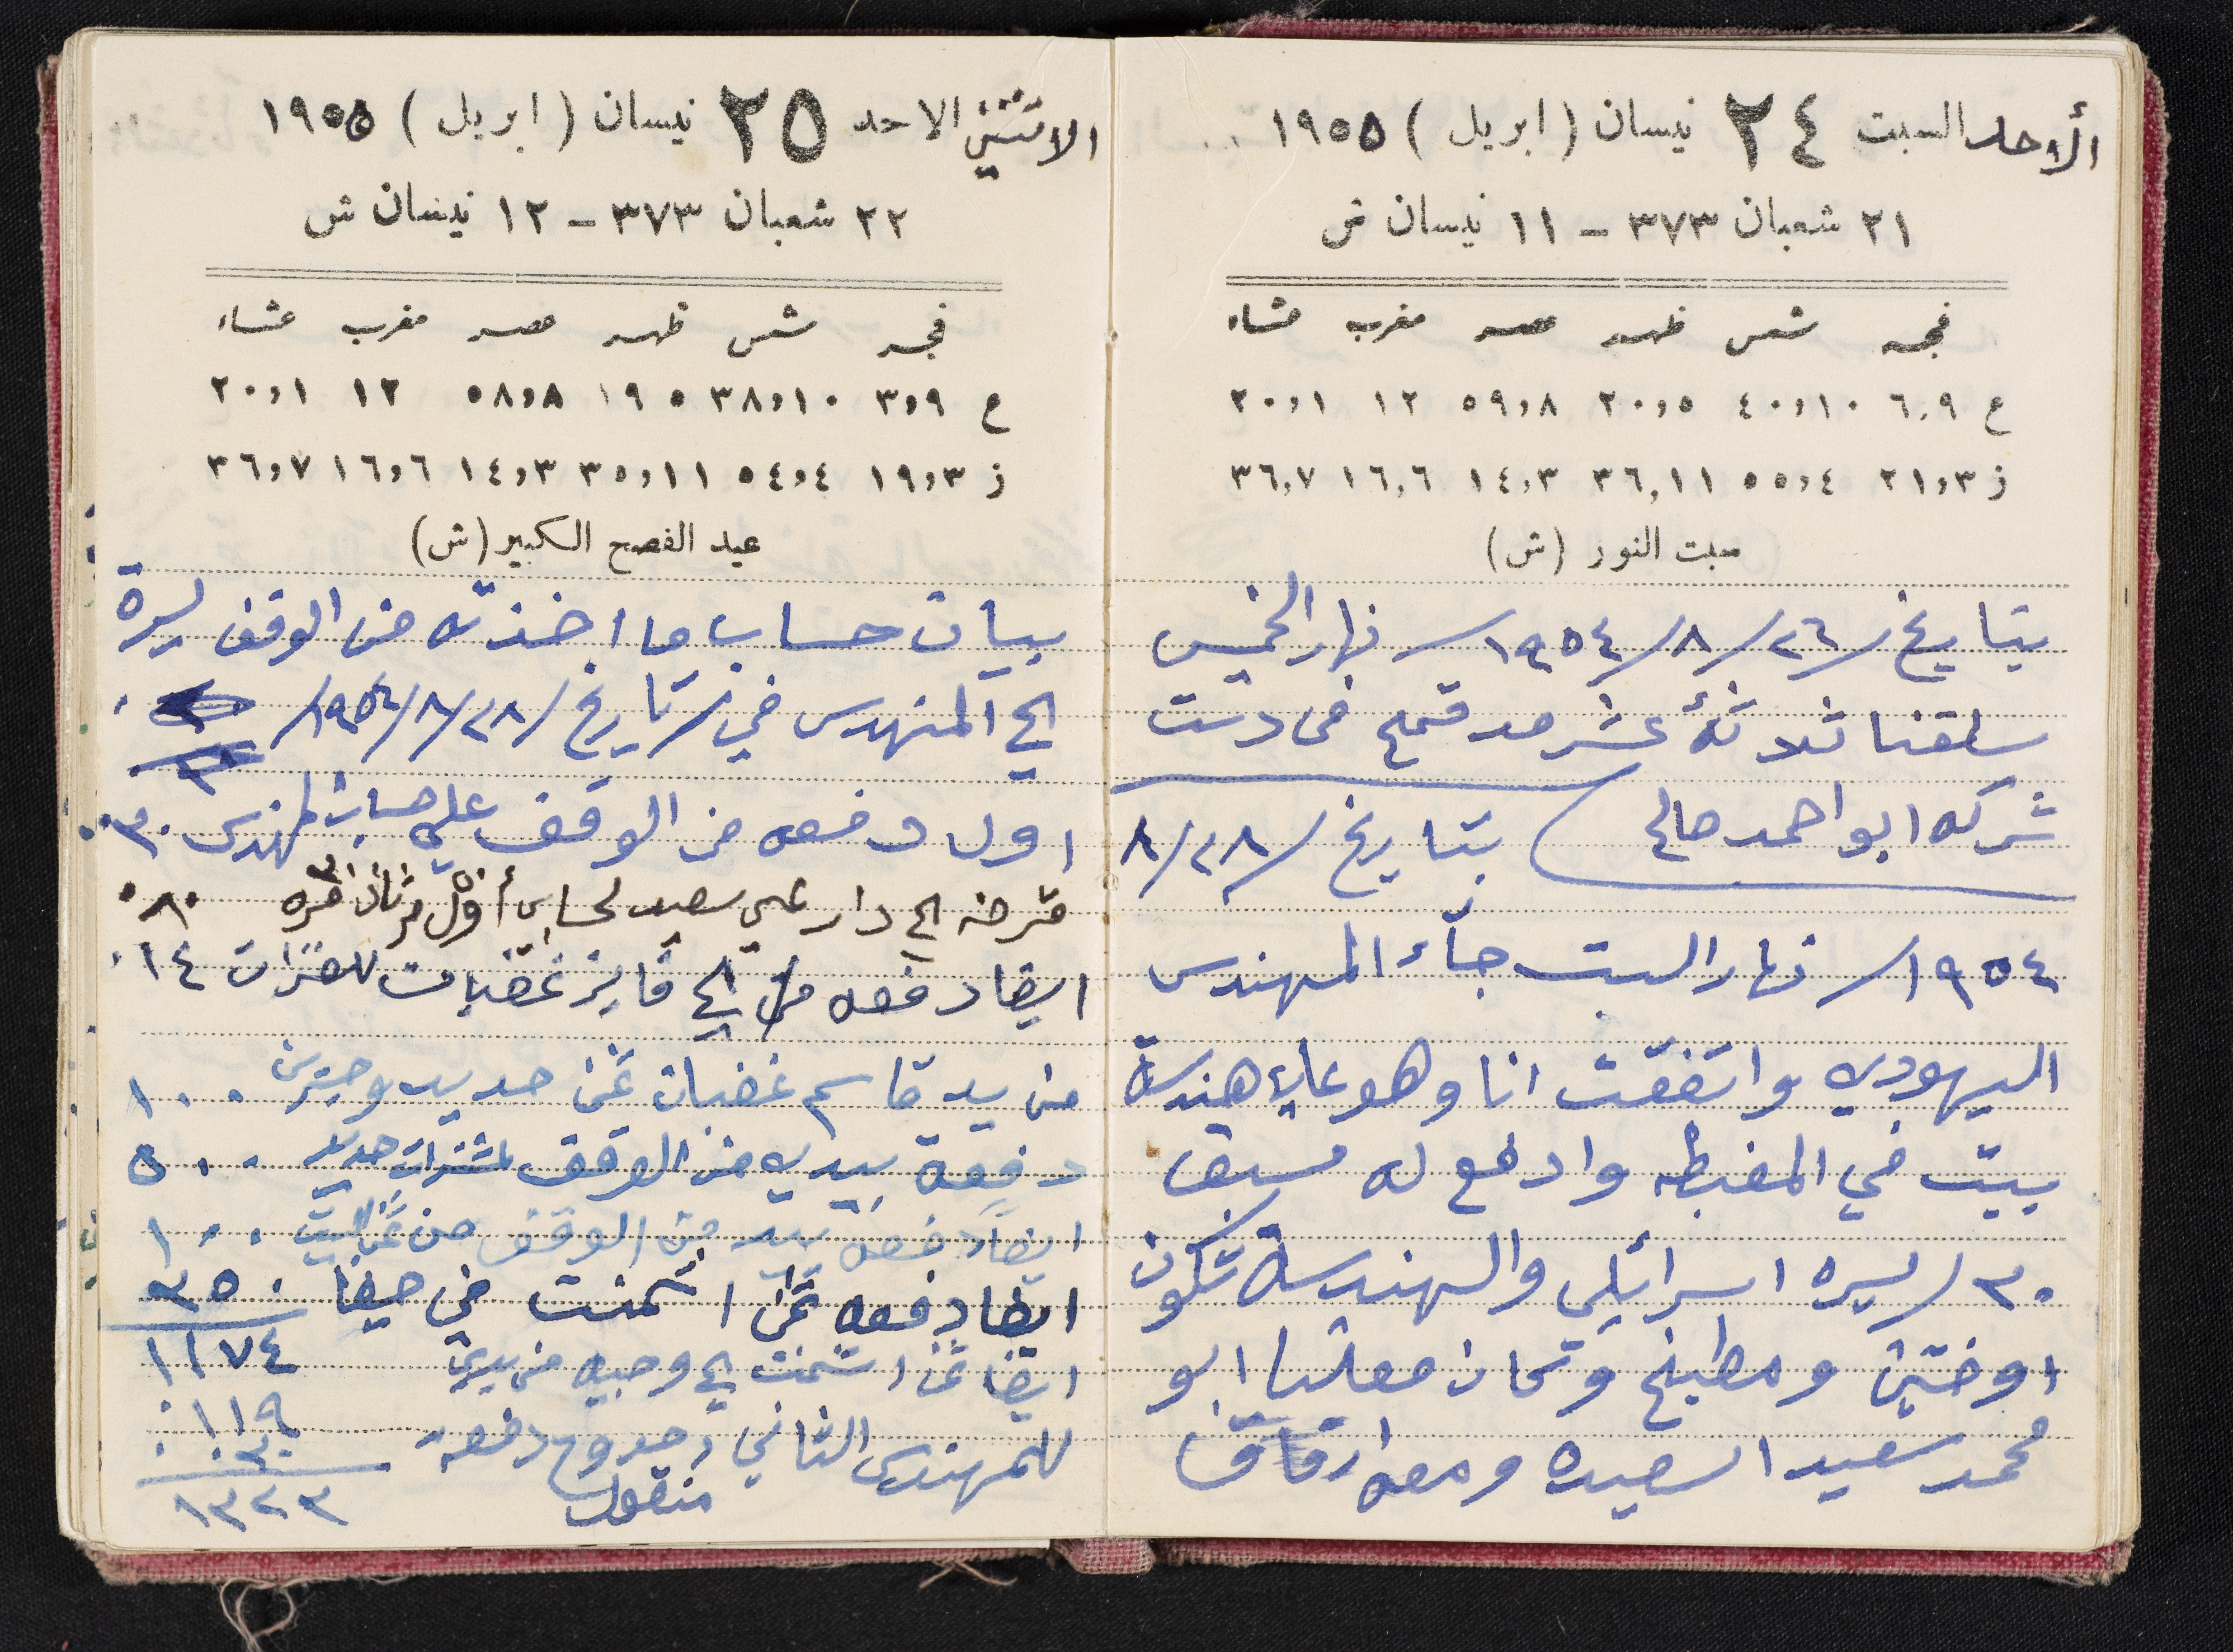 الأحد السبت ٢٤ نيسان (ابريل) ١٩٥٥
٢١ شعبان ٣٧٣ - ١١ نيسان ش
فجر شمس ظهر عصر مغرب عشاء
ع ٦،٩ ٤٠،١٠ ٢٠،٥ ٥٩،٨ ١٢ ٢٠،١
ز ٢١،٣ ٥٥،٤ ٣٦،١١ ١٤،٣ ١٦،٦ ٣٦،٧
سبت النور (ش)
بتاريخ /٢٦/ ٨/ ١٩٥٤/ نهار الخميس
سلقنا ثلاثة عشر مد قمح في دست
شركه ابو احمد صالح بتاريخ /٢٨/ ٨/
١٩٥٤/ نهار السبت جاء المهندس
اليهودي واتفقت انا وهو علي هندسة
بيت في المغبطه وادفع له مسبقا
٣٠/ ليره اسرائلي والهندسة تكون
اوضتين ومطبخ وكان معنا ابو
محمد سعيد السعيده ومعه
الاثنين الاحد ٢٥ نيسان (ابريل) ١٩٥٥
٢٢ شعبان ٣٧٣ - ١٢ نيسان ش
فجر شمس ظهر عصر مغرب عشاء
ع ٣،٩ ٣٨،١٠ ١٩ ٥ ٥٨،٨ ١٢ ٢٠،١
ز ١٩،٣ ٥٤،٤ ٣٥،١١ ١٤،٣ ١٦،٦ ٣٦،٧
عيد الفصح الكبير (ش)
بيان حساب ما اخذته من الوقف ليرة
الي المنهدس في تاريخ /٢٨/ ٨/ ١٩٥٤/
اول دفعه من الوقف علي حساب المهندس ٠٣٠
قرضه الي دار علي سعيد لحسابي أول مره ٠٨٠
ايضا دفعه الي فايز غضبان ٠١٤
من يد قاسم غضبان ثمن حديد ١٠٠
دفعة بيدي من الوقف حديد ٥٠٠
ايضا دفعه بيد من الوقف من ثمن ١٠٠
ايضا دفعه ثمن اسمنت في حيفا ٣٥٠
١١٧٤
ايضا ثمن اسمنت الي وجيه من يدي ١١٩
للمهندس الثاني دفعه ٠٣٠
منقول ١٣٢٣